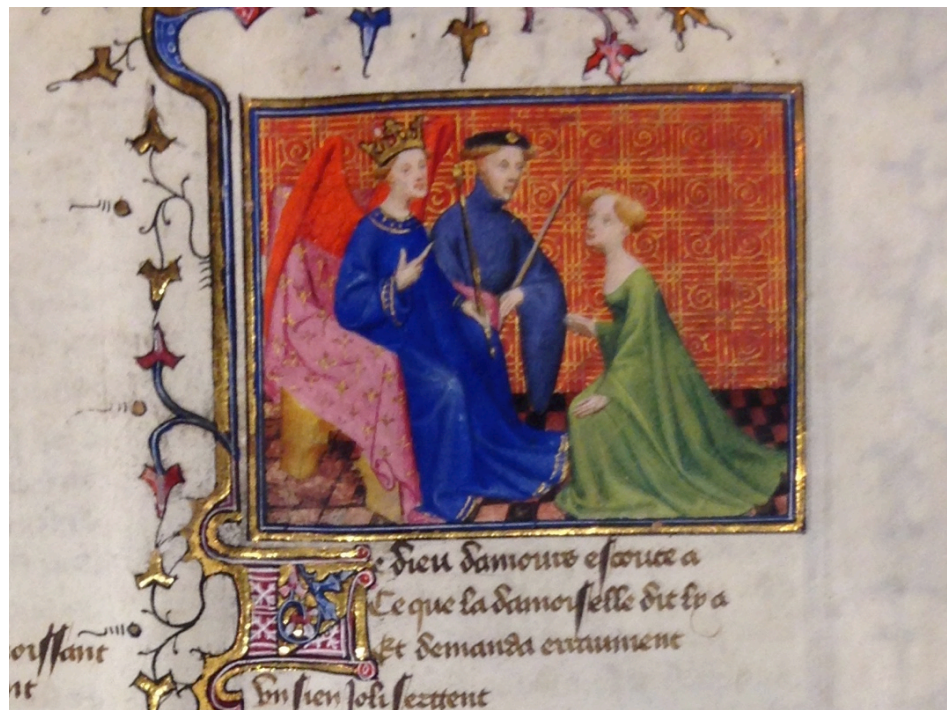 Le dieu damours escoute a
Ce que la damoiselle dit ly a
Et demanda erraument
Un sien joli sergent
oissant
nt